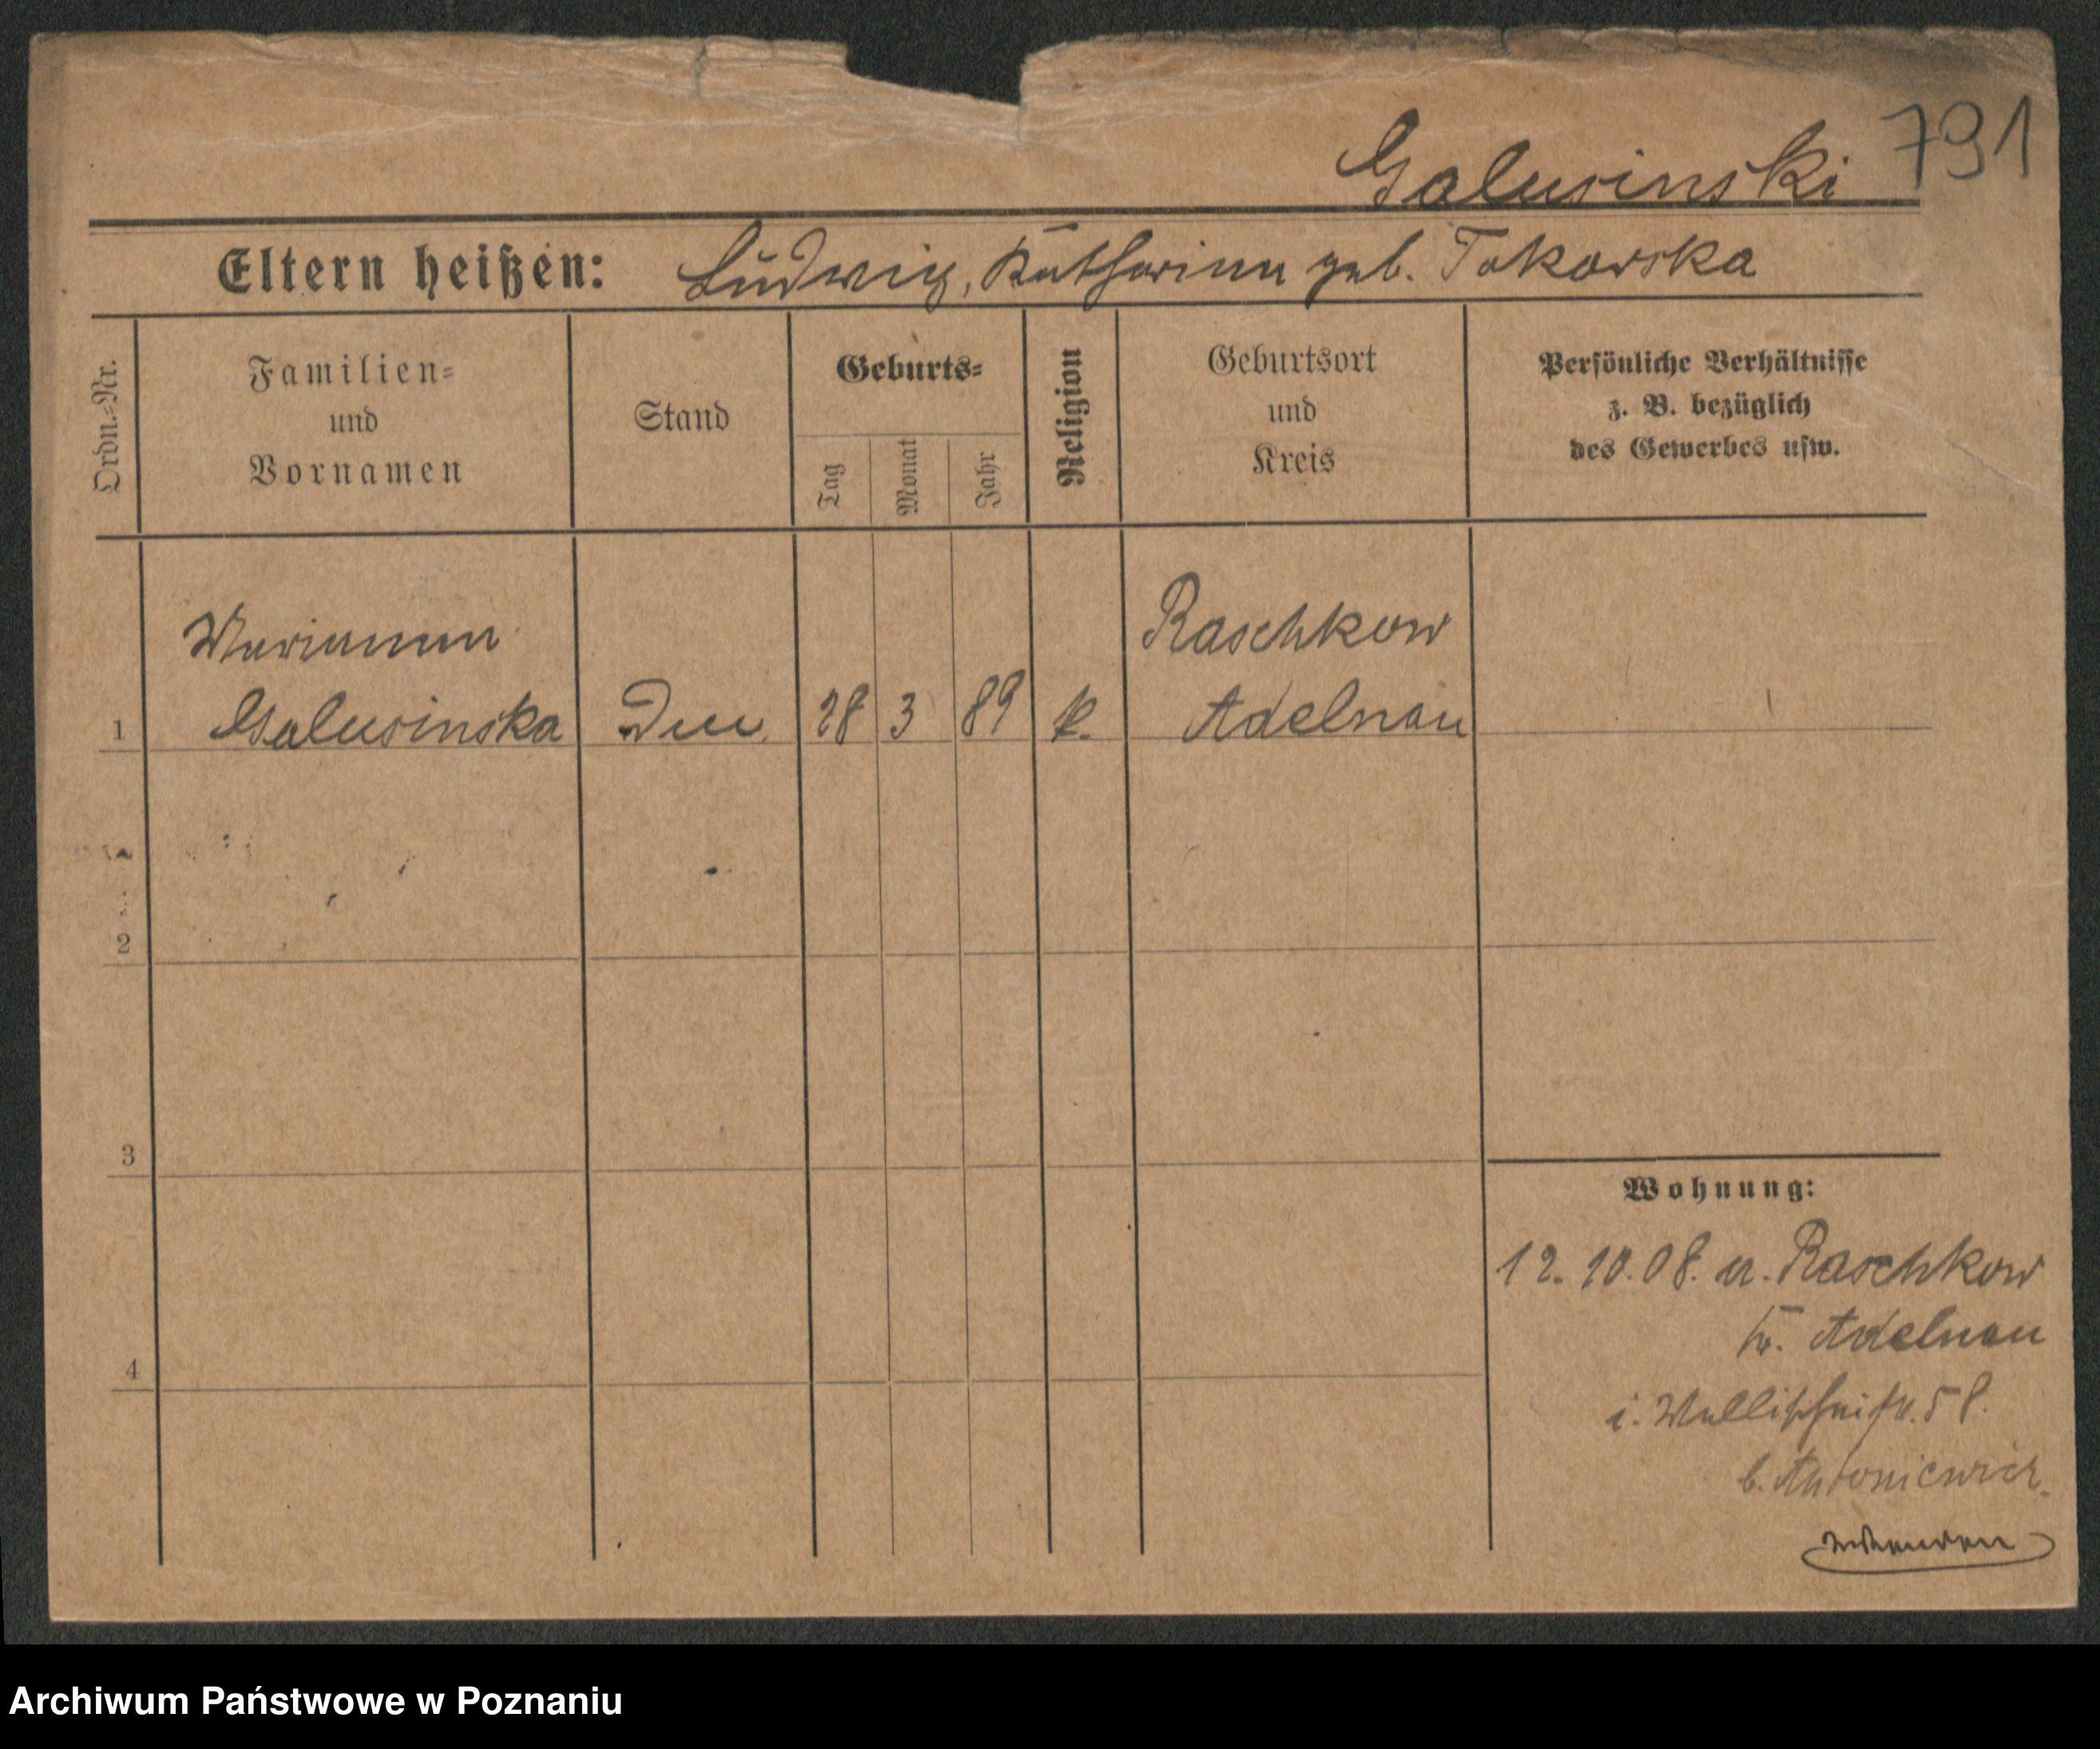 791
Galusinski
Eltern heißen: Ludwig, Katharina geb. Tokarska
Ordn.-Nr.
Familien-
und
Vornamen
Stand
Geburts-
Tag
Monat
Jahr
Religion
Geburtsort
und
Kreis
Persönliche Verhältnisse
z. B. bezüglich
des Gewerbes usw.
Marianna Raschkow
1 Galusinska 28 3 89 k. Adelnau
2
3
Wohnung:
12.10.08. a. Raschkow
Kr. Adelnau
4
i. Wallischeistr. 58.
b. Antoniewicz.
Archiwum Państwowe w Poznaniu